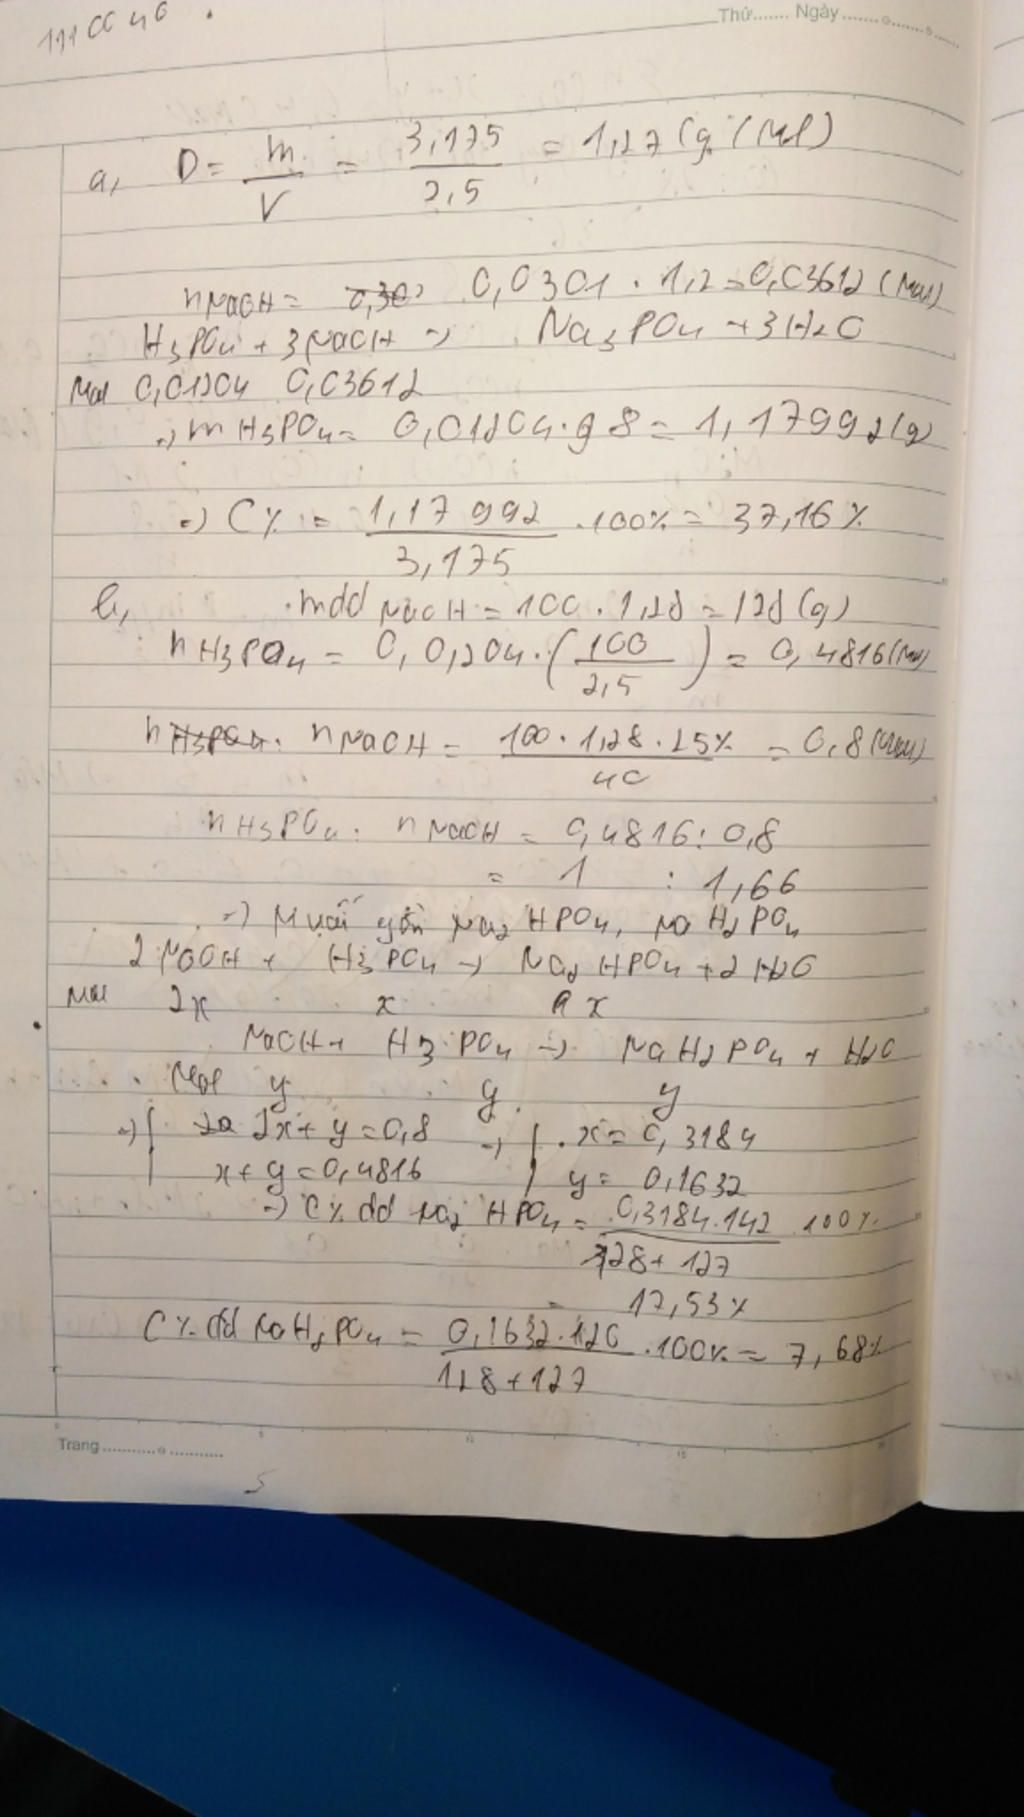 Thứ....... Ngày.......
a, D = m/V = 3,175/2,5 = 1,27 (g/ml)
nNaOH = 0,0301 . 1,2 = 0,03612 (mol)
H3PO4 + 3NaOH → Na3PO4 + 3H2O
Mol 0,01204 0,03612
⇒ mH3PO4 = 0,01204 . 98 = 1,17992 (g)
⇒ C% = 1,17992/3,175 .100% = 37,16%
b, mdd NaOH = 100 . 1,28 = 128 (g)
nH3PO4 = 0,01204 . (100/2,5) = 0,4816 (mol)
nNaOH = 100 . 1,28 . 25%/40 = 0,8 (mol)
nH3PO4 : nNaOH = 0,4816 : 0,8
= 1 : 1,66
⇒ Muối gồm Na2HPO4, NaH2PO4
2NaOH + H3PO4 → Na2HPO4 + 2H2O
Mol 2x x x
NaOH + H3PO4 → NaH2PO4 + H2O
Mol y y y
⇒ { 2x + y = 0,8 → { x = 0,3184
x + y = 0,4816 y = 0,1632
⇒ C% dd Na2HPO4 = 0,3184.142/128 + 127 .100%
= 17,53%
C% dd NaH2PO4 = 0,1632.120/128 + 127 .100% = 7,68%
Trang...........